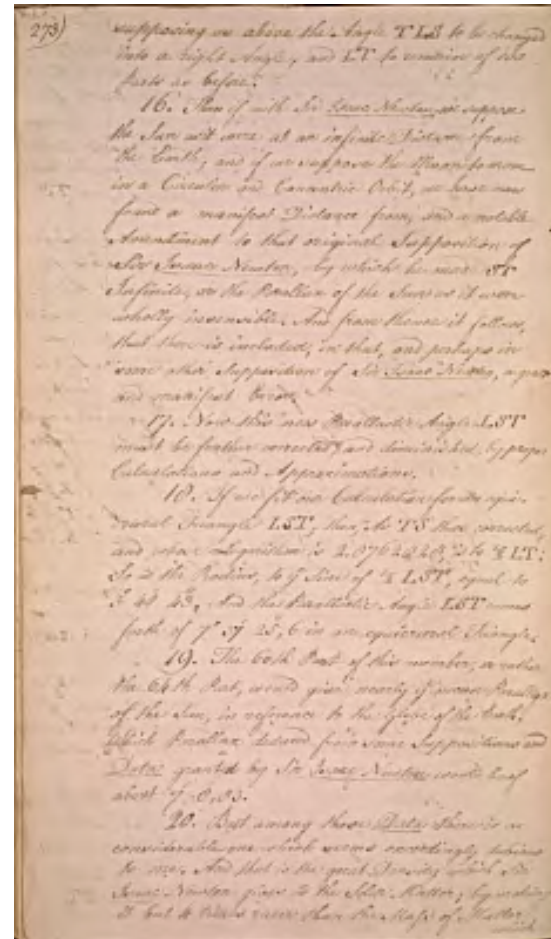 273)
supposing as above the Angle TLS to be changed
into a right Angle, and LT to remain of two
Parts as before.
16. Then if with Sir Isaac Newton, we suppose
the Sun as it were at an infinite Distance from
the Earth, and if we suppose the Moon to move
in a Circular and Concentric Orbit, we have now
found a manifest Distance from, and a notable
Amendment to that original Supposition of
Sir Isaac Newton, by which he made ST
Infinite, or the Parallax of the Sun as it were
wholly insensible. And from thence it follows,
that there is included, in that, and perhaps in
some other Supposition of Sir Isaac Newton, a great
and manifest Error.
17. Now this new Parallactic Angle LST
must be further corrected, and diminished, by proper
Calculations and Approximations.
18. If we fit our Calculation for an equi-
crural Triangle LST, then, As TS thus corrected,
and whose is to ½ LT:
So is the Radius, to ye Sine of ½ LST, equal to
And the Parallactic Angle LST comes
forth of in an equicrural Triangle.
19. The 60th Part of this number, or rather
the 64th Part, would give nearly ye mean Parallax
of the Sun, in reference to the Globe of the Earth.
Which Parallax deduced from some Suppositions and
Data granted by Sir Isaac Newton would be of
about
20. But among those Data there is a
considerable one which seems exceedingly dubious
to me. And that is the great Density which Sir
Isaac Newton gives to the Solar Matter; by making
it but 4 times rarer than the Mass of Matter
which